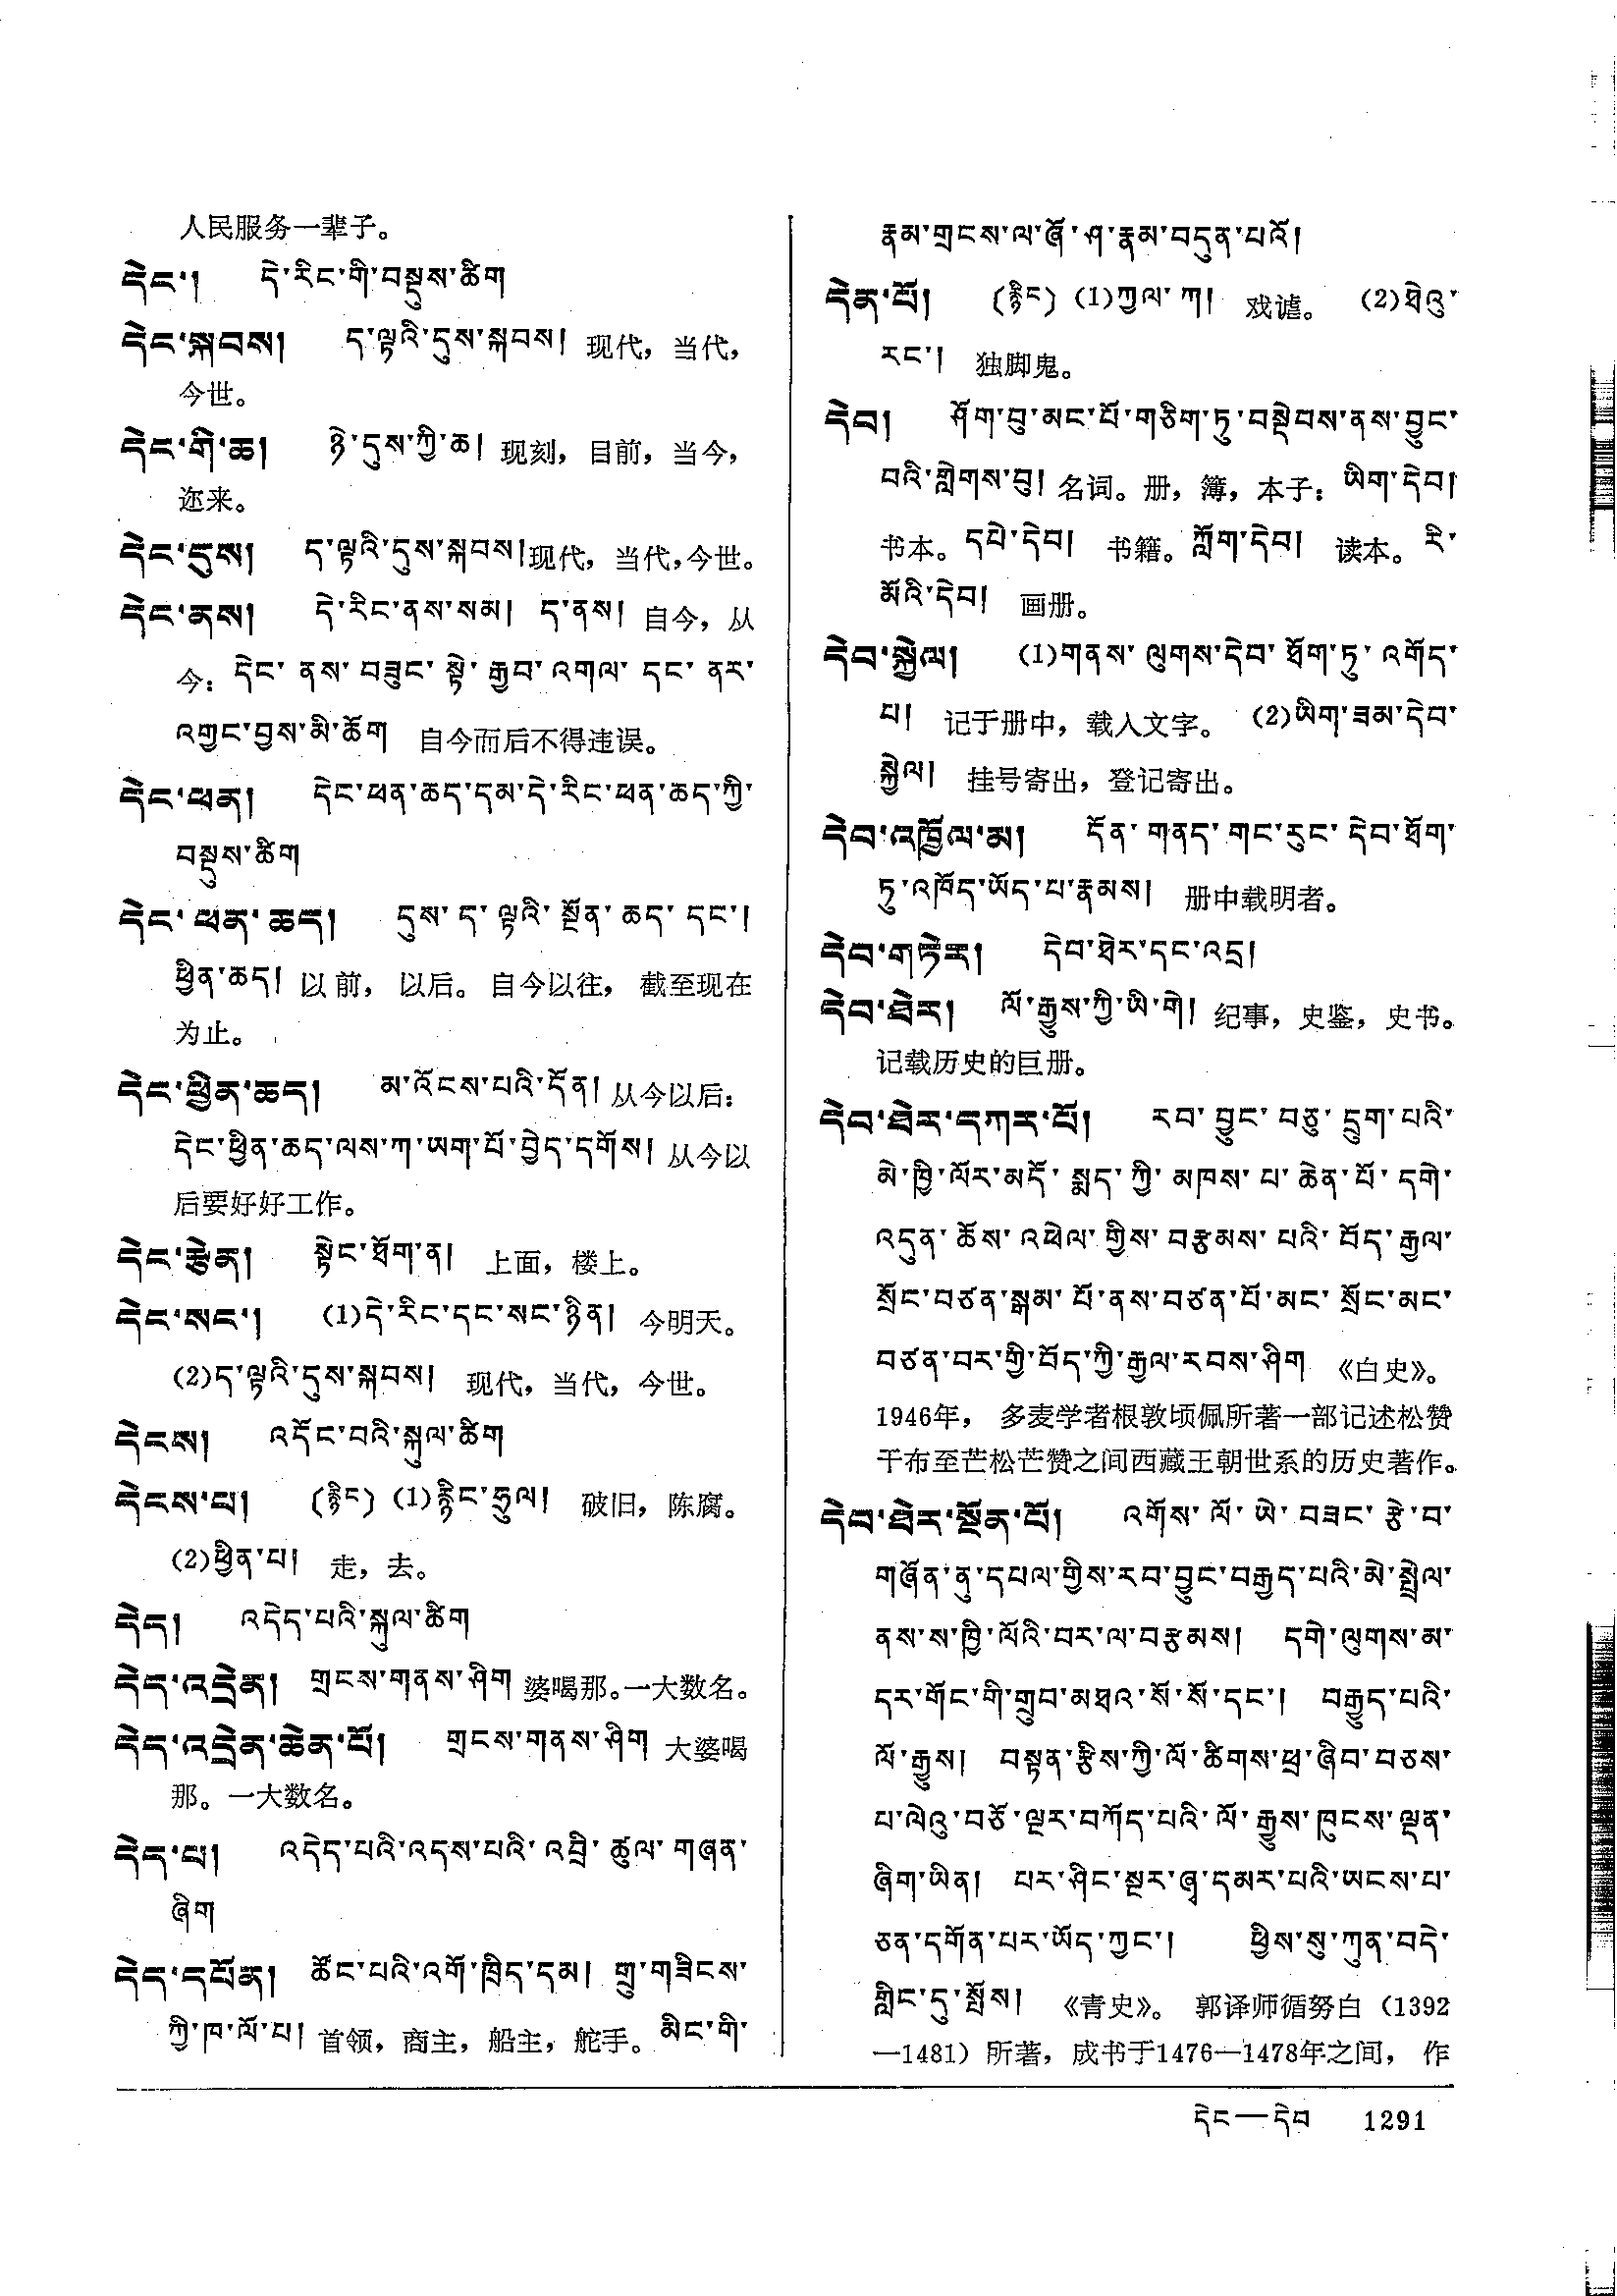 人民服务一辈子。
དེང་། དེ་རིང་གི་བསྡུས་ཚིག
དེང་སྐབས། ད་ལྟའི་དུས་སྐབས། 现代，当代，
今世。
དེང་གི་ཆ། ཉེ་དུས་ཀྱི་ཆ། 现刻，目前，当今，
迩来。
དེང་དུས། ད་ལྟའི་དུས་སྐབས།现代，当代，今世。
དེང་ནས། དེ་རིང་ནས་སམ། ད་ནས། 自今，从
今：དེང་ ནས་ བཟུང་ སྟེ་ རྒྱབ་ འགལ་ དང་ ནར་
འགྱང་བྱས་མི་ཆོག 自今而后不得违误。
དེང་ཕན། དེང་ཕན་ཆད་དམ་དེ་རིང་ཕན་ཆད་ཀྱི་
བསྡུས་ཚིག
དེང་ ཕན་ ཆད། དུས་ ད་ ལྟའི་ སྔོན་ ཆད་ དང་།
ཕྱིན་ཆད། 以前，以后。自今以往，截至现在
为止。
དེང་ཕྱིན་ཆད། མ་འོངས་པའི་དོན། 从今以后：
དེང་ཕྱིན་ཆད་ལས་ཀ་ཡག་པོ་བྱེད་དགོས། 从今以
后要好好工作。
དེང་རྩེན། སྟེང་ཐོག་ན། 上面，楼上。
དེང་སང་། (1)དེ་རིང་དང་སང་ཉིན། 今明天。
(2)ད་ལྟའི་དུས་སྐབས། 现代，当代，今世。
དེངས། འདོང་བའི་སྐུལ་ཚིག
དེངས་པ། (རྙིང) (1)རྙིང་ཧྲུལ། 破旧，陈腐。
(2)ཕྱིན་པ། 走，去。
དེད། འདེད་པའི་སྐུལ་ཚིག
དེད་འདྲེན། གྲངས་གནས་ཤིག 婆喝那。一大数名。
དེད་འདྲེན་ཆེན་པོ། གྲངས་གནས་ཤིག 大婆喝
那。一大数名。
དེད་པ། འདེད་པའི་འདས་པའི་ འབྲི་ ཚུལ་ གཞན་
ཞིག
དེད་དཔོན། ཚོང་པའི་འགོ་ཁྲིད་དམ། གྲུ་གཟིངས་
ཀྱི་ཁ་ལོ་པ། 首领，商主，船主，舵手。མིང་གི་
རྣམ་གྲངས་ལ་ཛོ་ཤ་རྣམ་བདུན་པའོ།
དེན་པོ། (རྙིང) (1)ཀྱལ་ ཀ། 戏谑。 (2)ཐེའུ་
རང་། 独脚鬼。
དེབ། ཤོག་བུ་མང་པོ་གཅིག་ཏུ་བསྡེབས་ནས་བྱུང་
བའི་གླེགས་བུ། 名词。册，簿，本子：ཡིག་དེབ།
书本。དཔེ་དེབ། 书籍。ཀློག་དེབ། 读本。རི་
མོའི་དེབ། 画册。
དེབ་སྐྱེལ། (1)གནས་ ལུགས་དེབ་ ཐོག་ཏུ་ འགོད་
པ། 记于册中，载入文字。 (2)ཡིག་ཟམ་དེབ་
སྐྱེལ། 挂号寄出，登记寄出。
དེབ་འཁྱོལ་མ། དོན་ གནད་ གང་རུང་ དེབ་ཐོག་
ཏུ་འཁོད་ཡོད་པ་རྣམས། 册中载明者。
དེབ་གཏེར། དེབ་ཐེར་དང་འདྲ།
དེབ་ཐེར། ལོ་རྒྱུས་ཀྱི་ཡི་གེ། 纪事，史鉴，史书。
记载历史的巨册。
དེབ་ཐེར་དཀར་པོ། རབ་ བྱུང་ བཅུ་ དྲུག་པའི་
མེ་ཁྱི་ལོར་མདོ་ སྨད་ ཀྱི་ མཁས་ པ་ ཆེན་ པོ་ དགེ་
འདུན་ ཆོས་ འཕེལ་ གྱིས་ བརྩམས་ པའི་ བོད་ རྒྱལ་
སྲོང་བཙན་སྒམ་ པོ་ནས་བཙན་པོ་མང་ སྲོང་མང་
བཙན་བར་གྱི་བོད་ཀྱི་རྒྱལ་རབས་ཤིག 《白史》。
1946年，多麦学者根敦顷佩所著一部记述松赞
干布至芒松芒赞之间西藏王朝世系的历史著作。
དེབ་ཐེར་སྔོན་པོ། འགོས་ ལོ་ ཡེ་ བཟང་ རྩེ་བ་
གཞོན་ནུ་དཔལ་གྱིས་རབ་བྱུང་བརྒྱད་པའི་མེ་སྤྲེལ་
ནས་ས་ཁྱི་ལོའི་བར་ལ་བརྩམས། དགེ་ལུགས་མ་
དར་གོང་གི་གྲུབ་མཐའ་སོ་སོ་དང་། བརྒྱུད་པའི་
ལོ་རྒྱུས། བསྟན་རྩིས་ཀྱི་ལོ་ཚིགས་ཕྲ་ཞིབ་བཅས་
པ་ལེའུ་བཅོ་ལྔར་བཀོད་པའི་ལོ་རྒྱུས་ཁུངས་ལྡན་
ཞིག་ཡིན། པར་ཤིང་སྔར་ཞྭ་དམར་པའི་ཡངས་པ་
ཅན་དགོན་པར་ཡོད་ཀྱང་། ཕྱིས་སུ་ཀུན་བདེ་
གླིང་དུ་སྤོས། 《青史》。 郭译师循努白（1392
—1481）所著，成书于1476—1478年之间，作
དེང—དེབ 1291